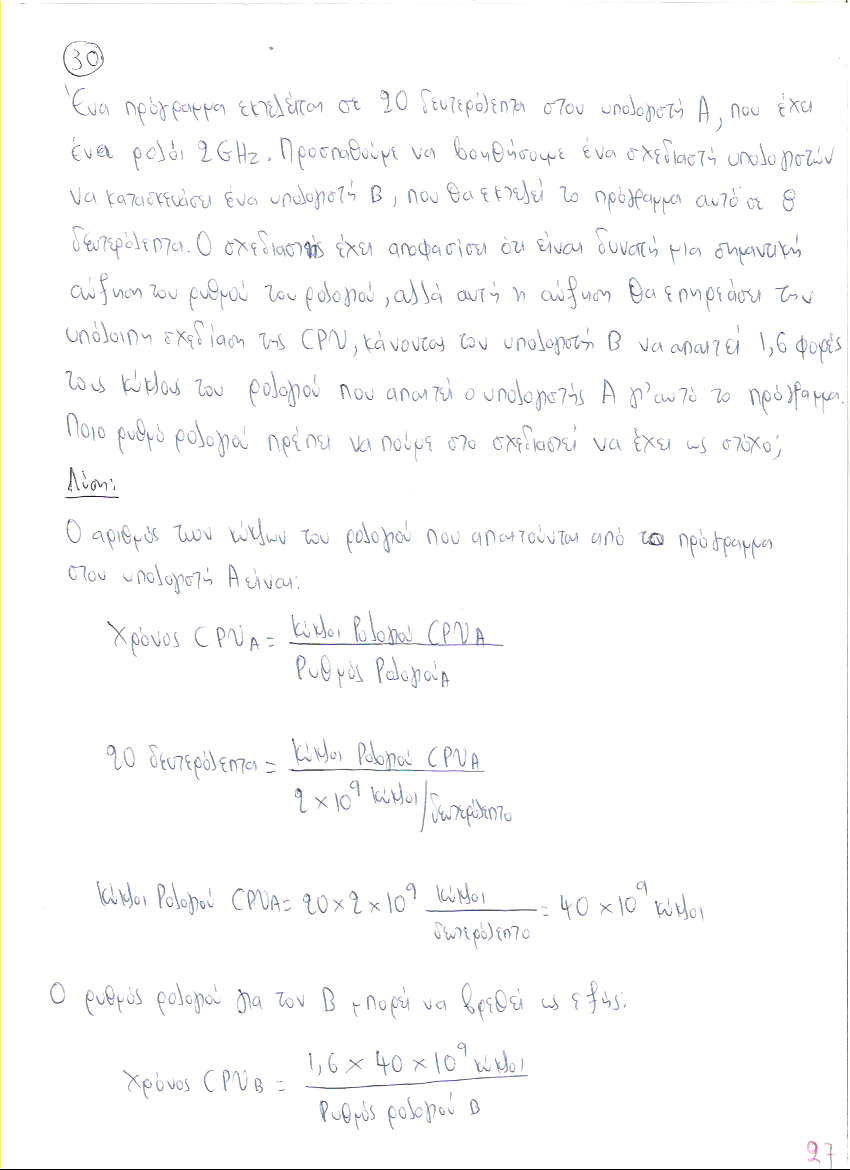 30
Ένα πρόγραμμα εκτελείται σε 20 δευτερόλεπτα στον υπολογιστή Α, που έχει
ένα ρολόι 2GHz. Προσπαθούμε να βοηθήσουμε ένα σχεδιαστή υπολογιστών
να κατασκευάσει ένα υπολογιστή Β, που θα εκτελεί το πρόγραμμα αυτό σε 8
δευτερόλεπτα. Ο σχεδιαστής έχει αποφασίσει ότι είναι δυνατή μια σημαντική
αύξηση του ρυθμού του ρολογιού, αλλά αυτή η αύξηση θα επηρεάσει την
υπόλοιπη σχεδίαση της CPU, κάνοντας τον υπολογιστή Β να απαιτεί 1,6 φορές
τους κύκλους του ρολογιού που απαιτεί ο υπολογιστής Α γι' αυτό το πρόγραμμα.
Ποιο ρυθμό ρολογιού πρέπει να πούμε στο σχεδιαστεί να έχει ως στόχο;
Λύση:
Ο αριθμός των κύκλων του ρολογιού που απαιτούνται από το πρόγραμμα
στον υπολογιστή Α είναι:
Χρόνος CPU A = Κύκλοι Ρολογιού CPU A
Ρυθμός Ρολογιού A
20 δευτερόλεπτα = Κύκλοι Ρολογιού CPU A
2 × 10^9 κύκλοι/δευτερόλεπτο
Κύκλοι Ρολογιού CPU A = 20 × 2 × 10^9 κύκλοι/δευτερόλεπτο = 40 × 10^9 κύκλοι
Ο ρυθμός ρολογιού για τον Β μπορεί να βρεθεί ως εξής:
Χρόνος CPU B = 1,6 × 40 × 10^9 κύκλοι
Ρυθμός ρολογιού B
27